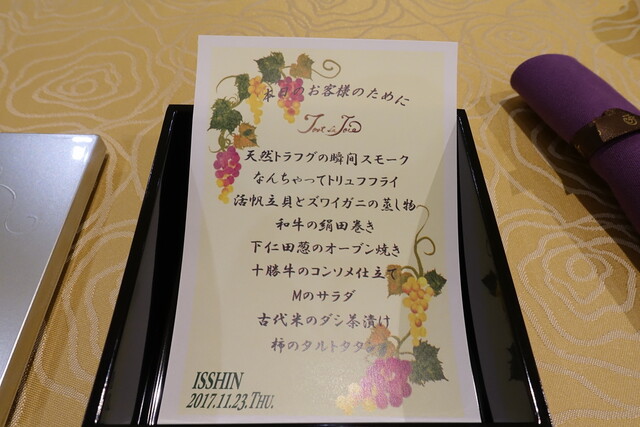 本日のお客様のために
天然トラフグの瞬間スモーク
なんちゃってトリュフフライ
活帆立貝とズワイガニの蒸し物
和牛の絹田巻き
下仁田葱のオーブン焼き
十勝牛のコンソメ仕立て
Mのサラダ
古代米のダシ茶漬け
柿のタルトタタン
ISSHIN
2017.11.23.THU.